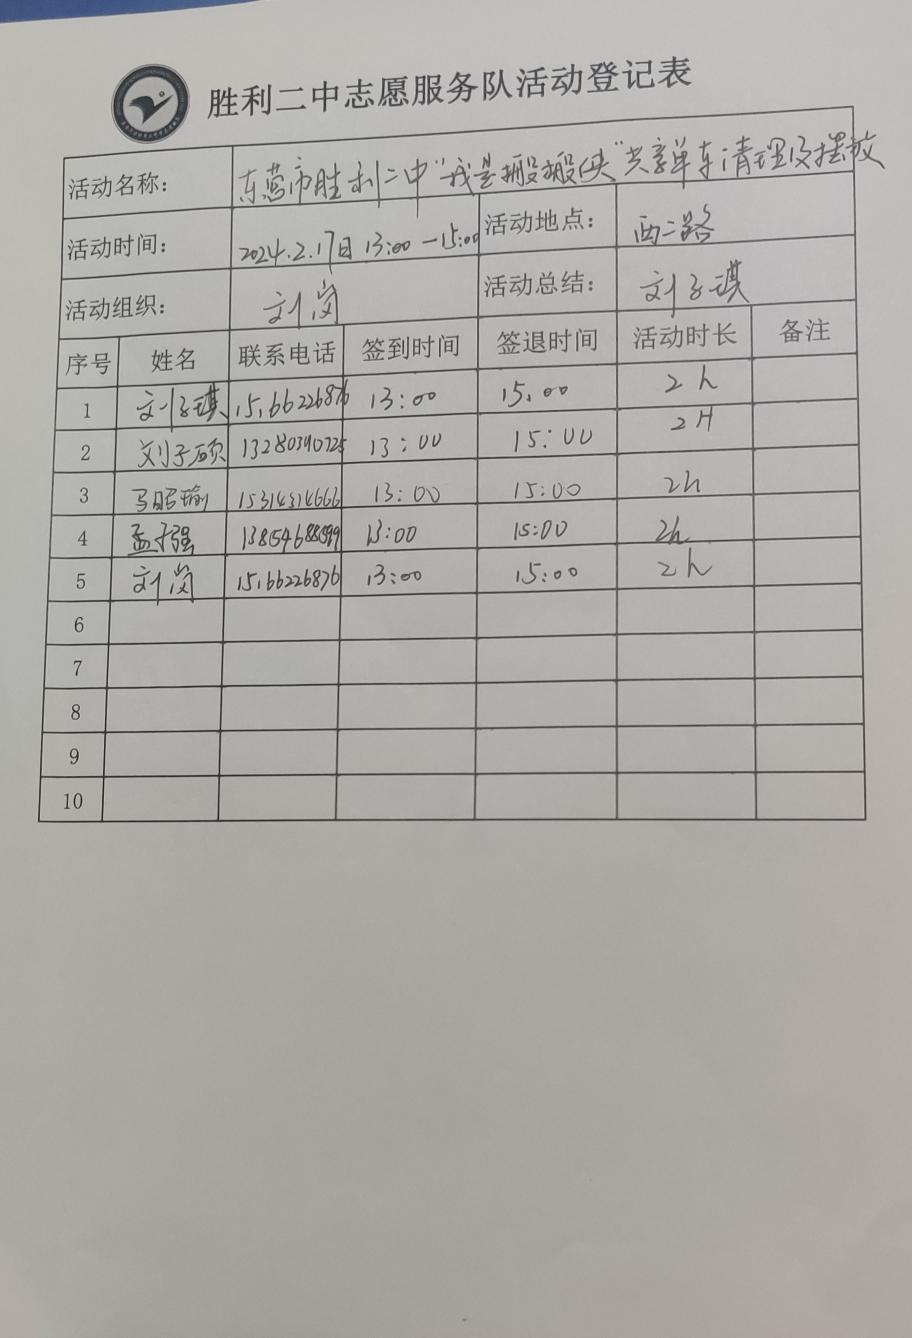 胜利二中志愿服务队活动登记表
活动名称: 东营市胜利二中"我是搬搬侠"共享单车清理及摆放
活动时间: 2024.2.17日 13:00-15:00 活动地点: 西二路
活动组织: 刘岗 活动总结: 刘子琪
序号 姓名 联系电话 签到时间 签退时间 活动时长 备注
1 刘子琪 15166226876 13:00 15:00 2h
2 刘子硕 13280390725 13:00 15:00 2H
3 马昭瑜 15314314666 13:00 15:00 2h
4 孟才强 13854688599 13:00 15:00 2h
5 刘岗 15166226876 13:00 15:00 2h
6
7
8
9
10